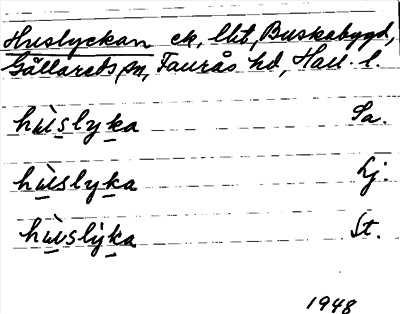 Huslyckan ek, lht, Buskabygd,
Gällareds sn, Faurås hd, Hall. l.
hùslyka Sa.
hùslyka Lj.
hùslýka St.
1948